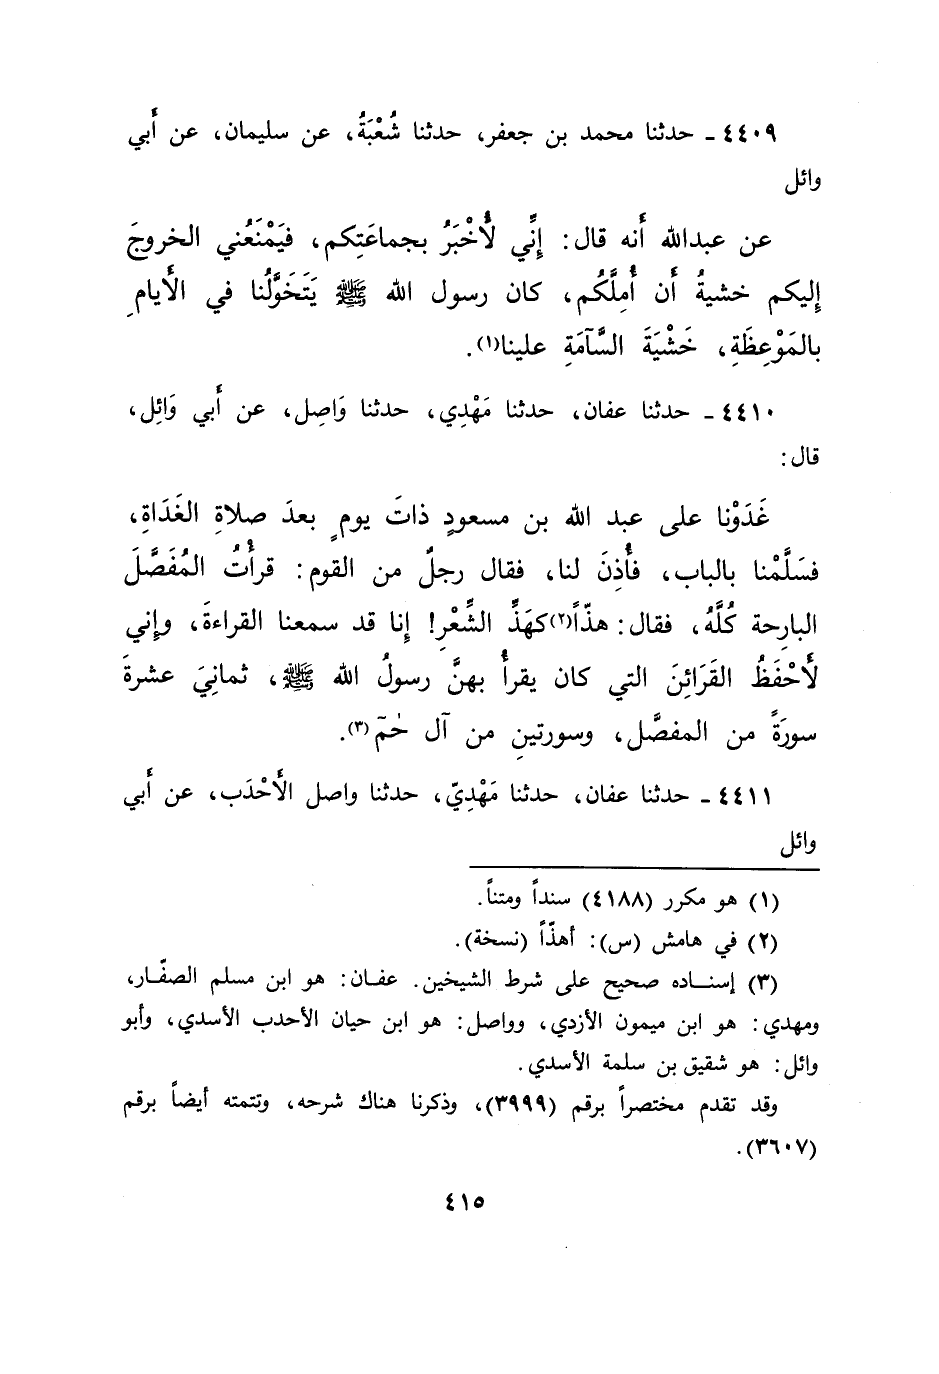 ٤٤٠٩ ـ حدثنا محمد بن جعفر، حدثنا شُعْبَةُ، عن سليمان، عن أَبي
وائل
عن عبدالله أَنه قال: إِنِّي لأُخْبَرُ بجماعَتِكم، فيَمْنَعُني الخروجَ
إِليكم خشيةُ أَن أُمِلَّكُم، كان رسول الله ﷺ يَتَخَوَّلُنا في الأَيامِ
بالمَوْعِظَةِ، خَشْيَةَ السَّآمَةِ علينا(١).
٤٤١٠ ـ حدثنا عفان، حدثنا مَهْدِي، حدثنا وَاصِل، عن أَبي وَائِل،
قال:
غَدَوْنا على عبد الله بن مسعودٍ ذاتَ يومٍ بعدَ صلاةِ الغَدَاةِ،
فسَلَّمْنا بالباب، فأُذِنَ لنا، فقال رجلٌ من القوم: قرأْتُ المُفَصَّلَ
البارحة كُلَّهُ، فقال: هذّاً(٢)كهَذِّ الشِّعْرِ! إِنا قد سمعنا القراءةَ، وإِني
لأَحْفَظُ القَرَائِنَ التي كان يقرأُ بهنَّ رسولُ الله ﷺ، ثمانِيَ عشرةَ
سورَةً من المفصَّل، وسورتينِ من آل حٰمٓ(٣).
٤٤١١ ـ حدثنا عفان، حدثنا مَهْدِيّ، حدثنا واصل الأَحْدَب، عن أَبي
وائل
(١) هو مكرر (٤١٨٨) سنداً ومتناً.
(٢) في هامش (س): أهذّاً (نسخة).
(٣) إسناده صحيح على شرط الشيخين. عفان: هو ابن مسلم الصفّار،
ومهدي: هو ابن ميمون الأزدي، وواصل: هو ابن حيان الأحدب الأسدي، وأبو
وائل: هو شقيق بن سلمة الأسدي.
وقد تقدم مختصراً برقم (٣٩٩٩)، وذكرنا هناك شرحه، وتتمته أيضاً برقم
(٣٦٠٧).
٤١٥